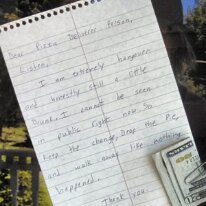 Dear Pizza Deliverer Person,
Listen,
I am extremely hungover
and honestly still a little
Drunk, I cannot be seen
in public right now so
Keep the change, Drop the Pie,
and walk away like nothing
happened.
Thank you